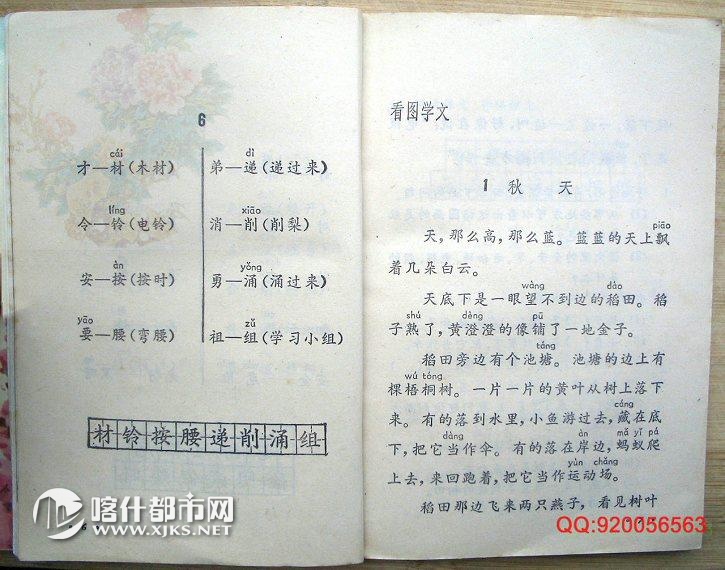 6
cái dì
才—材(木材) 弟—递(递过来)
líng xiāo
令—铃(电铃) 消—削(削梨)
àn yǒng
安—按(按时) 勇—涌(涌过来)
yāo zǔ
要—腰(弯腰) 祖—组(学习小组)
材铃按腰递削涌组
喀什都市网
WWW.XJKS.NET
看图学文
1 秋 天
piāo
天,那么高,那么蓝。蓝蓝的天上飘
着几朵白云。
wàng dào
天底下是一眼望不到边的稻田。稻
shú dèng pū
子熟了,黄澄澄的像铺了一地金子。
táng
稻田旁边有个池塘。池塘的边上有
wú tóng
棵梧桐树。一片一片的黄叶从树上落下
cáng
来。有的落到水里,小鱼游过去,藏在底
dàng àn mǎ yǐ pá
下,把它当作伞。有的落在岸边,蚂蚁爬
yùn chǎng
上去,来回跑着,把它当作运动场。
稻田那边飞来两只燕子,看见树叶
QQ:920056563